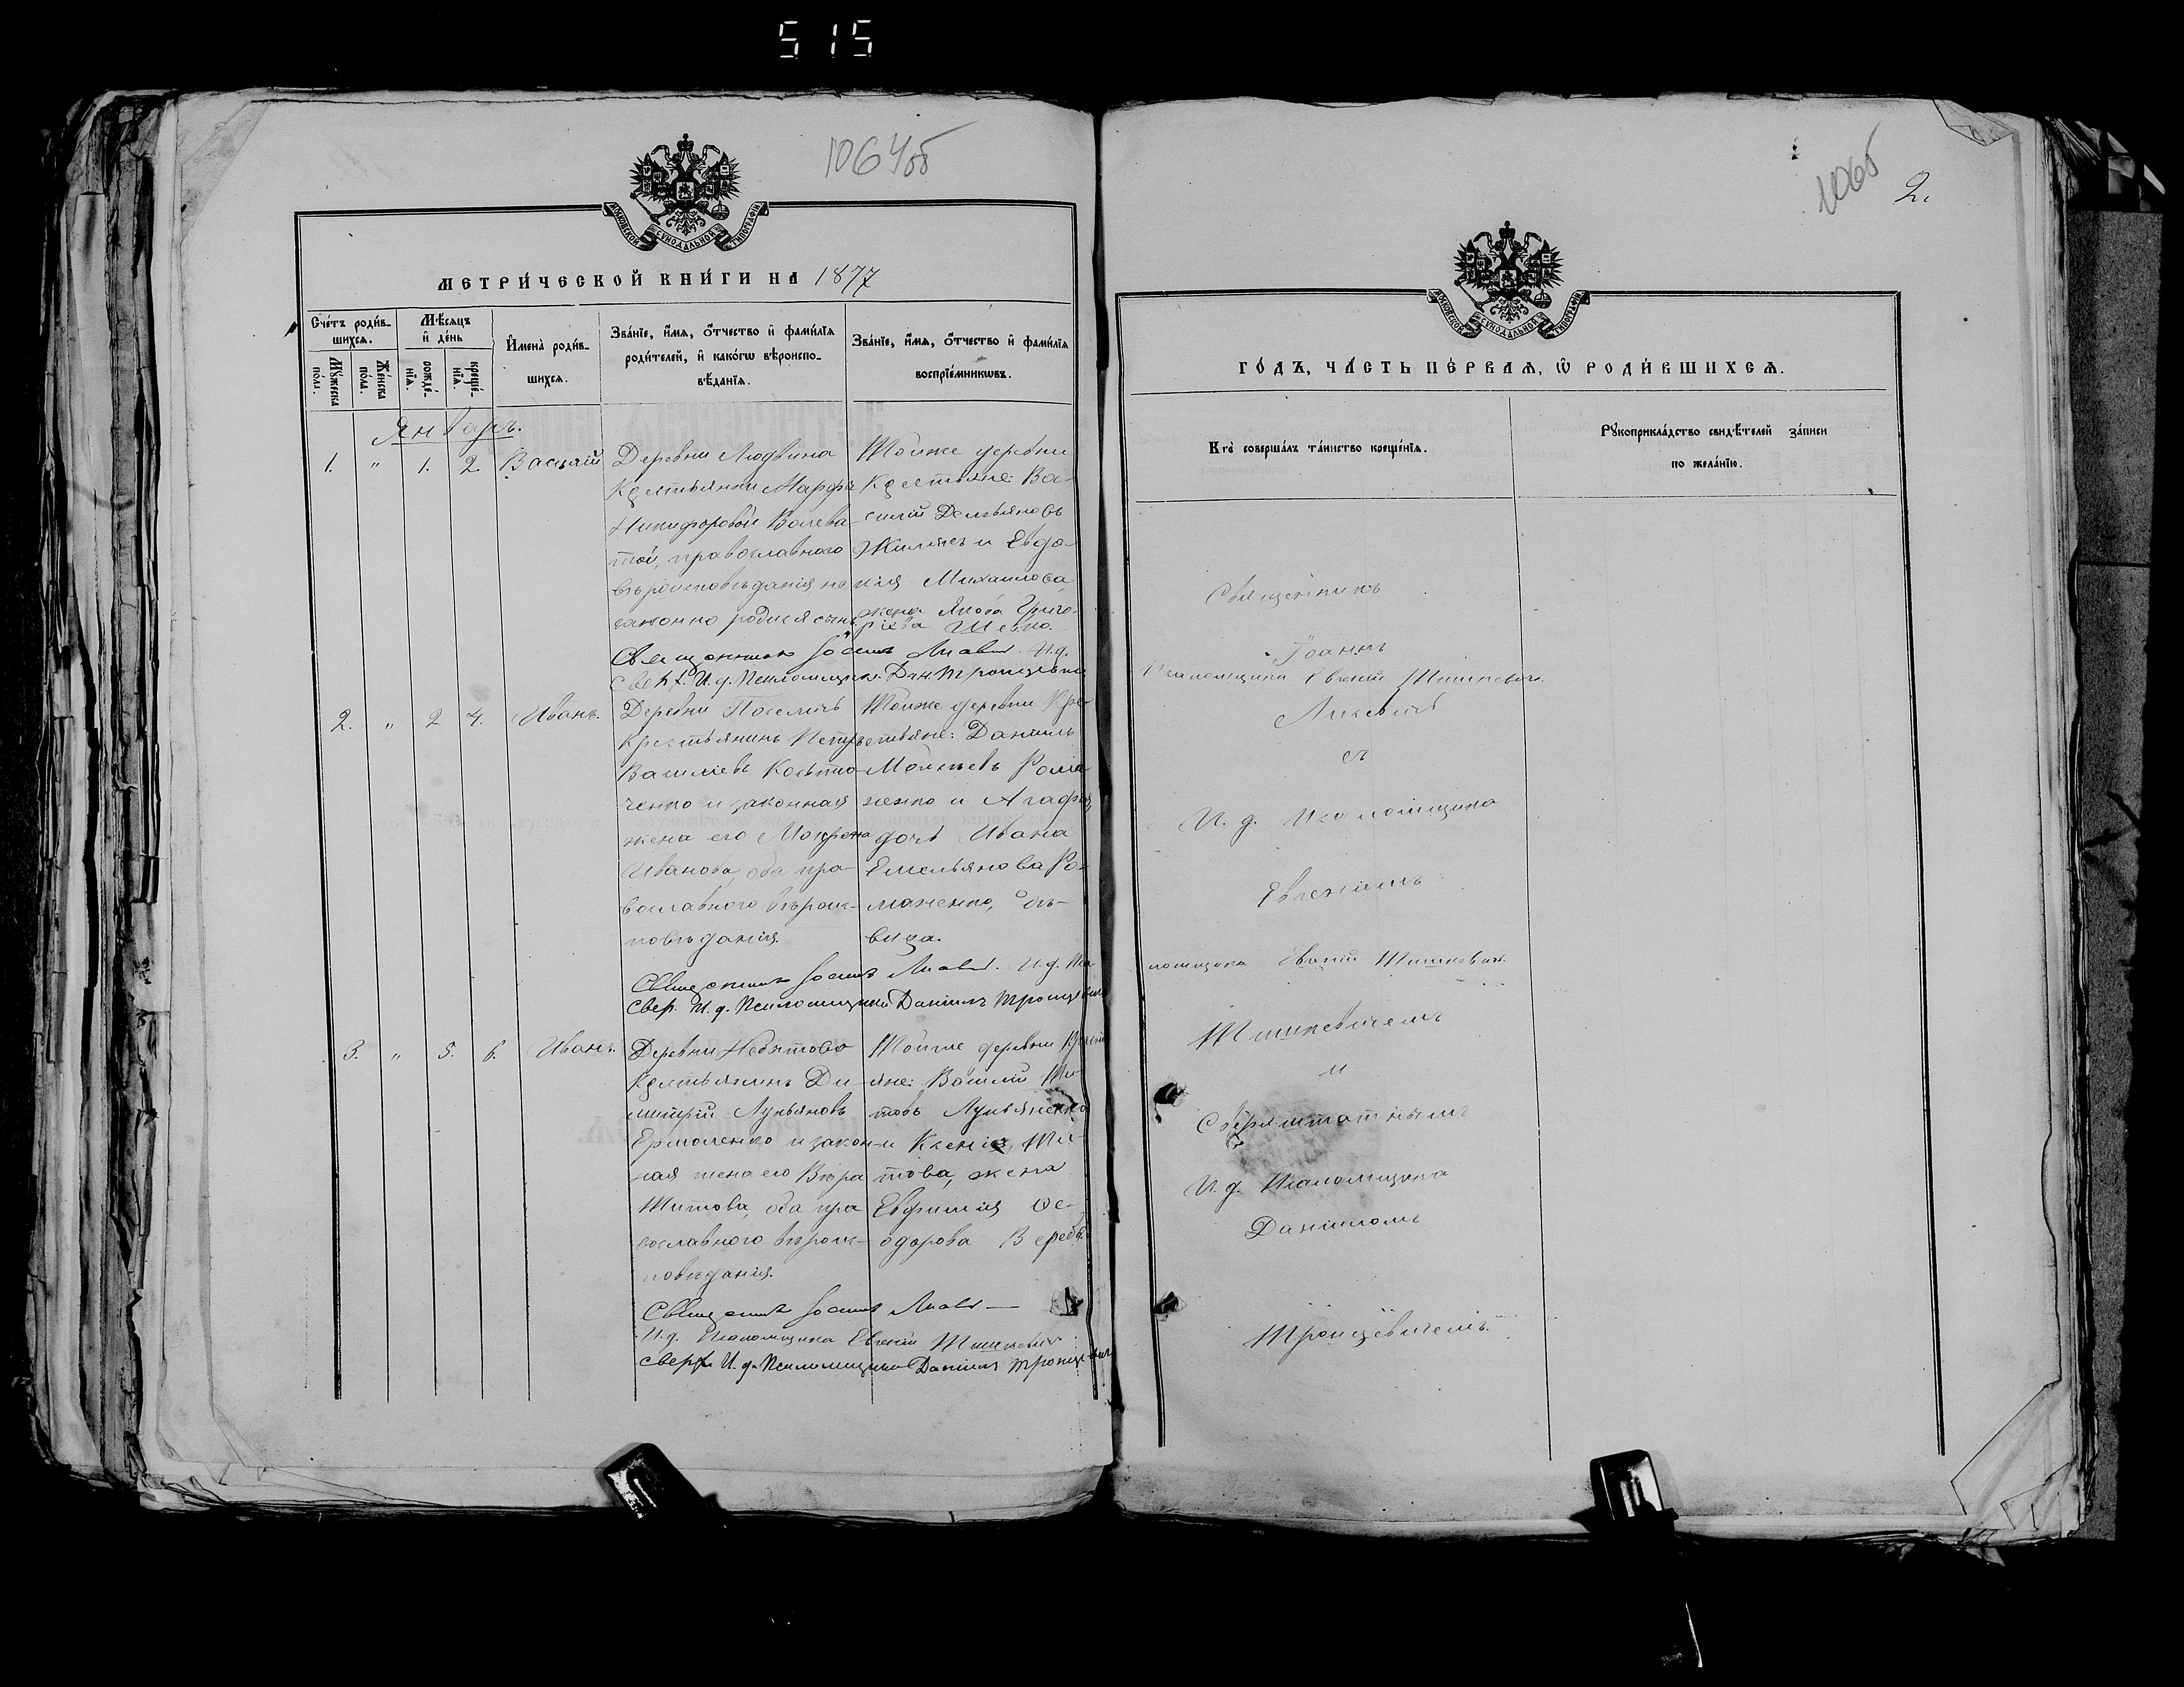 515
1064об
МОСКОВСКОЙ СѴНОДАЛЬНОЙ ТИПОГРАФІИ
МЕТРИ́ЧЕСКОЙ КНИ́ГИ НА 1877
Сче́тъ роди́в-
шихсѧ.
Мꙋ́жеска
по́ла.
Же́нска
по́ла.
Мѣ́сяцъ
и҆ де́нь
рожде́-
нїѧ.
креще́-
нїѧ.
И҆мена̀ роди́в-
шихсѧ.
Зва́нїе, и҆́мѧ, ѻ҆́тчество и҆ фами́лїѧ
роди́телей, и҆ како́гѡ вѣ́роиспо-
вѣ́данїѧ.
Зва́нїе, и҆́мѧ, ѻ҆́тчество и҆ фами́лїѧ
воспрїе́мникѡвъ.
Январь.
1. " 1. 2. Василій
Деревни Людвина
Крестьянки Марфы
Никифоровой
той, православного
вѣроисповѣданія не
законно родился сынъ.
Тойже деревни
Крестьяне: Ва-
силій
и Евдо-
кія Михаилова
жена Якова Григо-
рьева
Священникъ И.д.
И.д. Псаломщика
2. " 2 4. Иванъ.
Деревни
Крестьянинъ Петръ
Василіевъ
ченко и законная
жена его Мокрена
Иванова, оба пра-
вославного вѣроис-
повѣданія.
Тойже деревни Кре-
стьяне: Даніилъ
Рома-
ненко и Агафія,
дочь Ивана
Емельянова Ро-
маненко, дѣ-
вица.
Священникъ И.д. Пса
Свер. И.д. Псаломщика Даніилъ Троицевичъ
3. " 5. 6. Иванъ.
Деревни Небытово
Крестьянинъ Ди-
митрій Лукьяновъ
Ермоленко и закон-
ная жена его Вѣра
Титова, оба пра
вославного вѣроис-
повѣданія.
Тойже деревни
яне: Василій Ти-
товъ Лукьяненко
и Ксенія Ти-
това, жена
Евфимія Ѳе-
одорова
Священникъ
И.д. Псаломщика Евгеній Тишкевичъ
Сверх. И.д. Псаломщика Даніилъ Троицевичъ
1065
2.
МОСКОВСКОЙ СѴНОДАЛЬНОЙ ТИПОГРАФІИ
ГО́ДЪ, ЧА́СТЬ ПЕ́РВАѦ, Ѡ҆ РОДИ́ВШИХСѦ.
Кто̀ соверша́лъ та́инство креще́нїѧ.
Рꙋкоприкла́дство свидѣ́телей за́писи
по жела́нїю.
Священникъ
Іоаннъ
Псаломщика Евгеній Тишкевичъ.
съ
И. д. Псаломщика
Евгеніемъ
ломщика Евгеній Тишкевичъ.
Тишкевичемъ
и
Сверхштатнымъ
И. д. Псаломщика
Даніиломъ
Троицевичемъ.